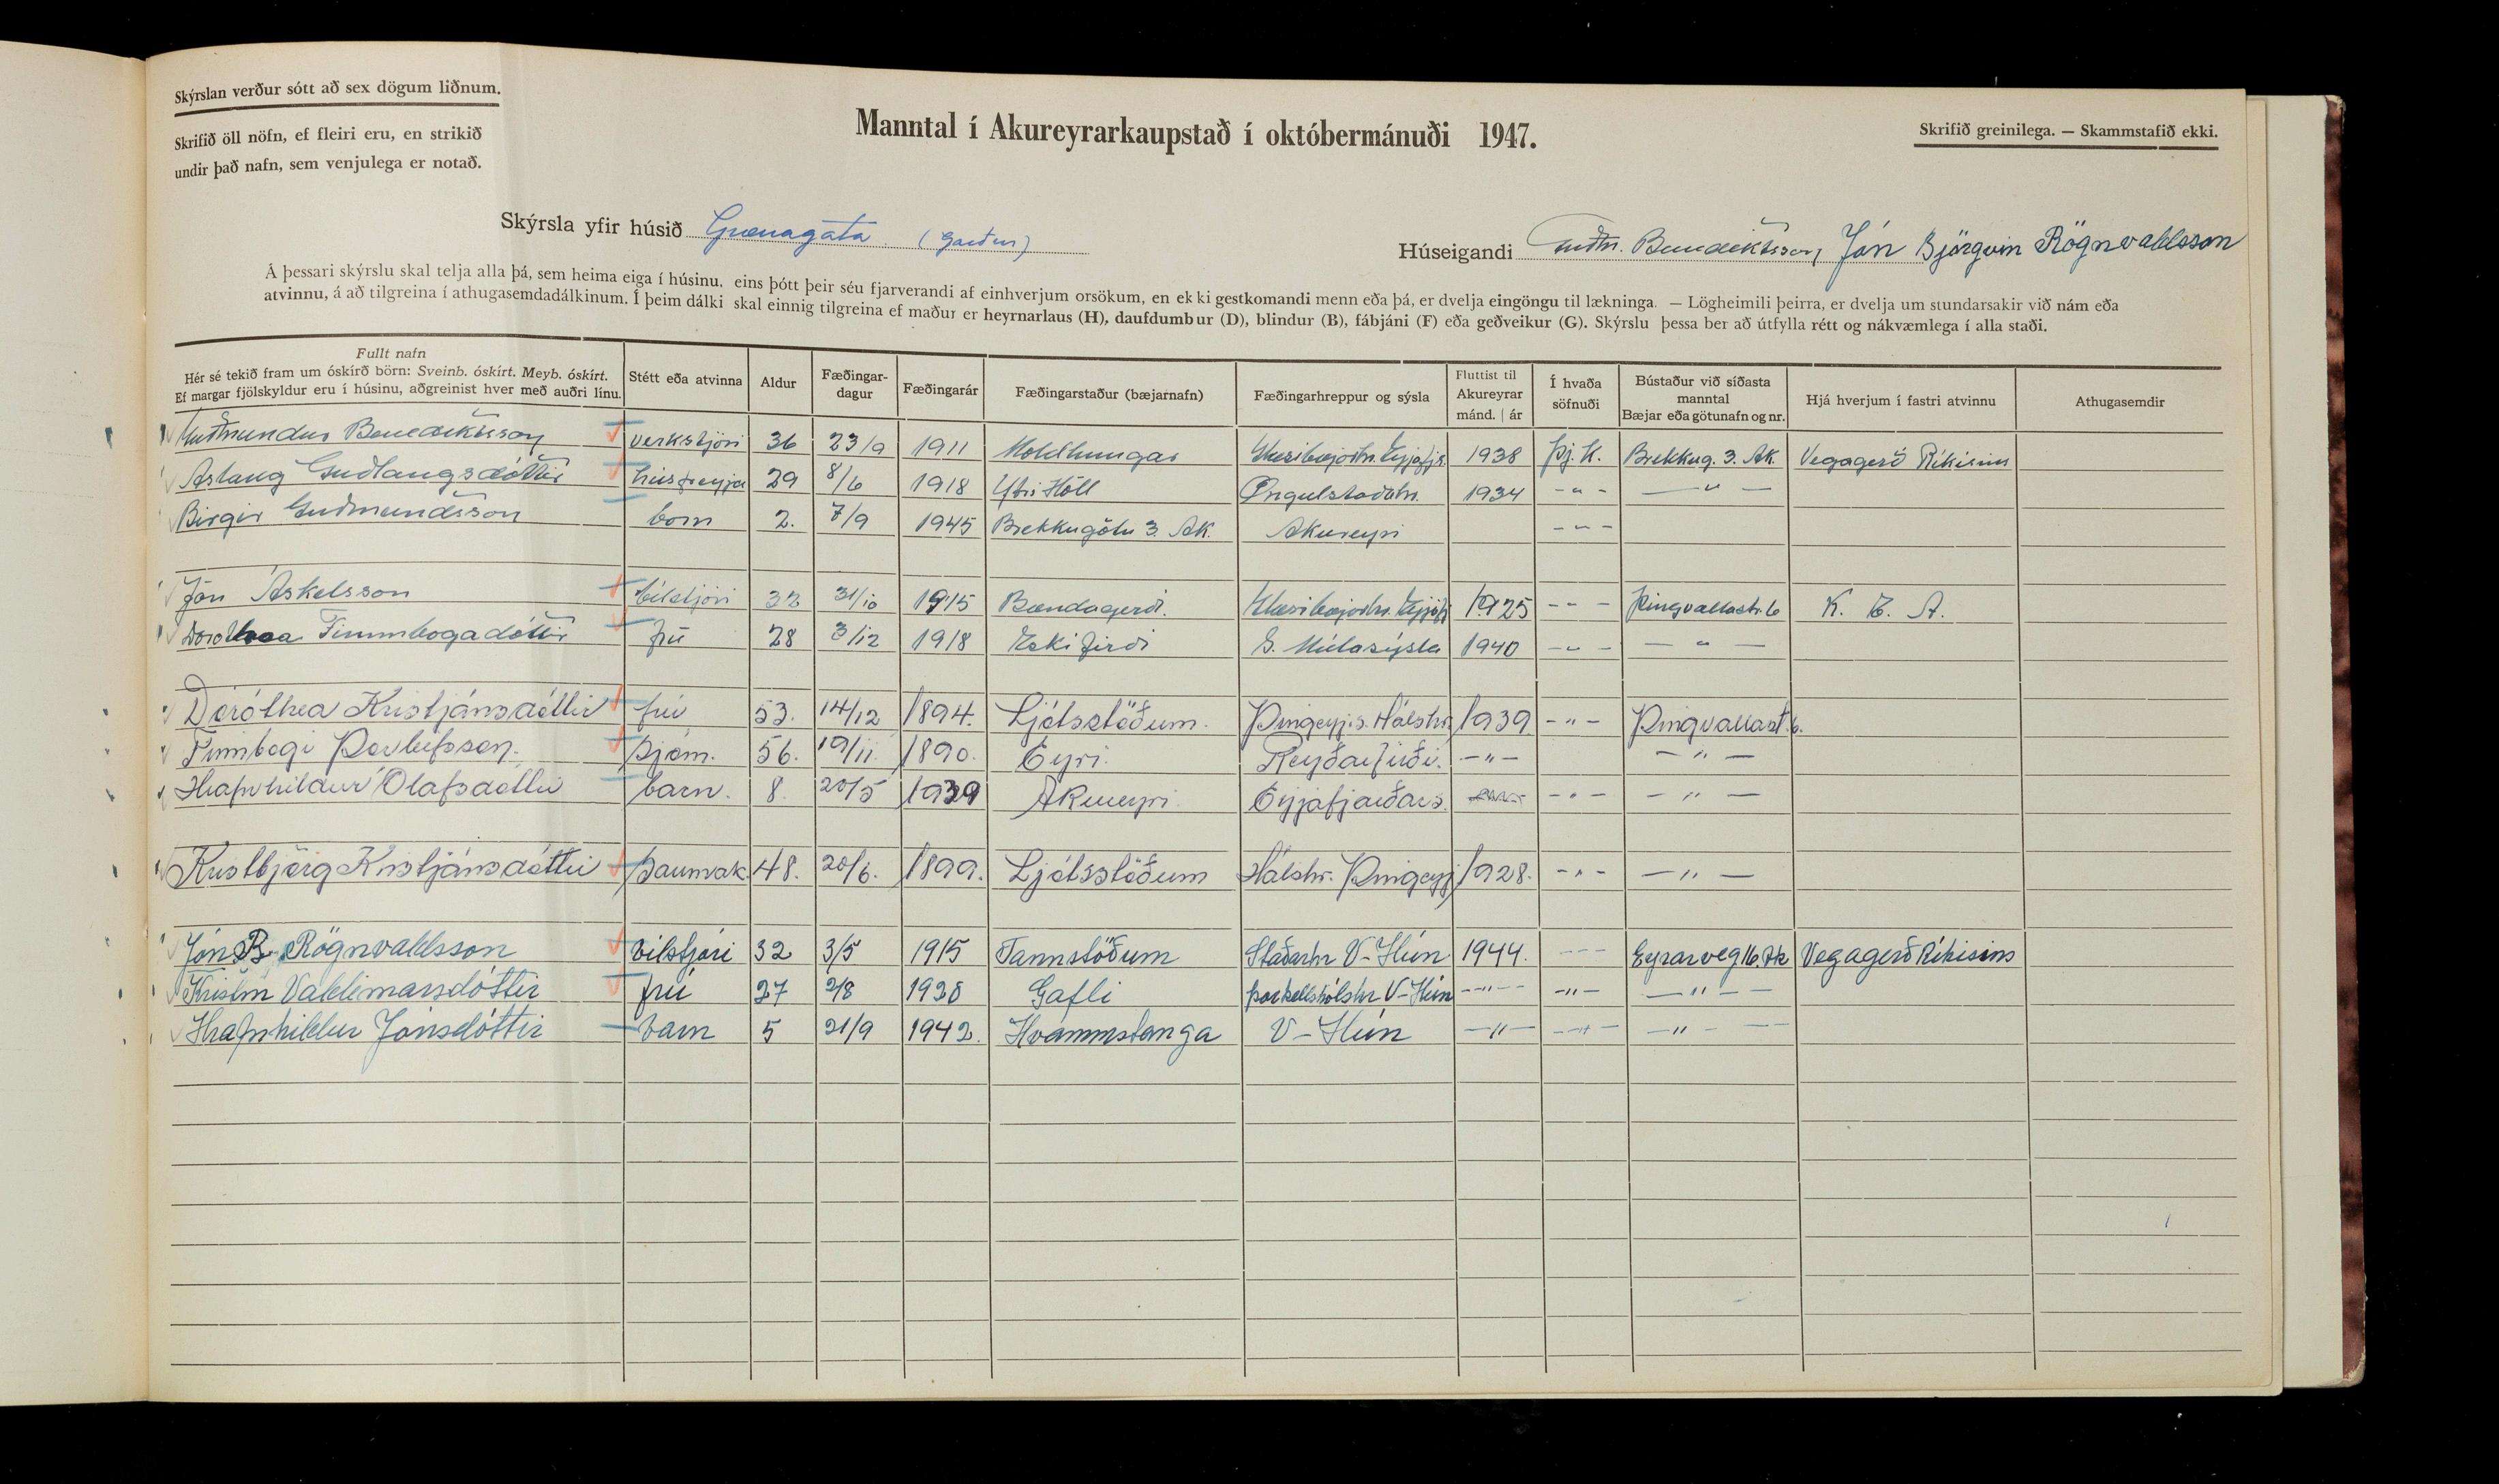 Skýrslan verður sótt að sex dögum liðnum.
Skrifið öll nöfn, ef fleiri eru, en strikið
undir það nafn, sem venjulega er notað.
Manntal í Akureyrarkaupstað í októbermánuði 1947.
Skrifið greinilega. — Skammstafið ekki.
Skýrsla yfir húsið Grænagata (Garður)
Húseigandi Guðm. Benediktsson, Jón Björgvin Rögnvaldsson
Á þessari skýrslu skal telja alla þá, sem heima eiga í húsinu, eins þótt þeir séu fjarverandi af einhverjum orsökum, en ekki gestkomandi menn eða þá, er dvelja eingöngu til lækninga. — Lögheimili þeirra, er dvelja um stundarsakir við nám eða
atvinnu, á að tilgreina í athugasemdadálkinum. Í þeim dálki skal einnig tilgreina ef maður er heyrnarlaus (H), daufdumbur (D), blindur (B), fábjáni (F) eða geðveikur (G). Skýrslu þessa ber að útfylla rétt og nákvæmlega í alla staði.
Fullt nafn
Hér sé tekið fram um óskírð börn: Sveinb. óskírt. Meyb. óskírt.
Ef margar fjölskyldur eru í húsinu, aðgreinist hver með auðri línu.
Stétt eða atvinna
Aldur
Fæðingar-
dagur
Fæðingarár
Fæðingarstaður (bæjarnafn)
Fæðingarhreppur og sýsla
Fluttist til
Akureyrar
mánd. | ár
Í hvaða
söfnuði
Bústaður við síðasta
manntal
Bæjar eða götunafn og nr.
Hjá hverjum í fastri atvinnu
Athugasemdir
Guðmundur Benediktsson verkstjóri 36 23/9 1911 Moldhaugar Glæsibæjarhr. Eyjafjs. 1938 Þj. K. Brekkug. 3. Ak. Vegagerð Ríkisins
Áslaug Guðlaugsdóttir húsfreyja 29 8/6 1918 Ytri Hóll Öngulstaðahr. 1934 - " - — " —
Birgir Guðmundsson barn 2. 7/9 1945 Brekkugötu 3. AK. Akureyri - " -
Jón Áskelsson bílstjóri 32 31/10 1915 Bandagerði. Glæsibæjarhr. Eyjafj. 1925 - " - Þingvallastr. 6 K. E. A.
Dorothea Finnbogadóttir frú 28 3/12 1918 Eskifirði S. Múlasýsla 1940 - " - — " —
Dóróthea Kristjánsdóttir frú 53. 14/12 1894. Ljótsstöðum. Þingeyj.s. Hálshr. 1939 - " - Þingvallast. 6.
Finnbogi Þorleifsson. Sjóm. 56. 19/11 1890. Eyri. Reyðarfirði. - " - — " —
Hrafnhildur Ólafsdóttir barn. 8. 20/5 1939 Akureyri. Eyjafjarðars. - " - — " —
Kristbjörg Kristjánsdóttir Saumak. 48. 20/6. 1899. Ljótsstöðum Hálshr. Þingeyj 1928. - " - — " —
Jón B. Rögnvaldsson bílstjóri 32 3/5 1915 Tannstöðum Staðarhr V-Hún 1944. - - - Eyrarveg 16. Ak Vegagerð Ríkisins
Kristín Valdimarsdóttir frú 27 2/8 1920 Gafli Þorkellshólshr V-Hún - " - - " - — " —
Hrafnhildur Jónsdóttir barn 5 21/9 1942. Hvammstanga V-Hún — " — — " — — " —